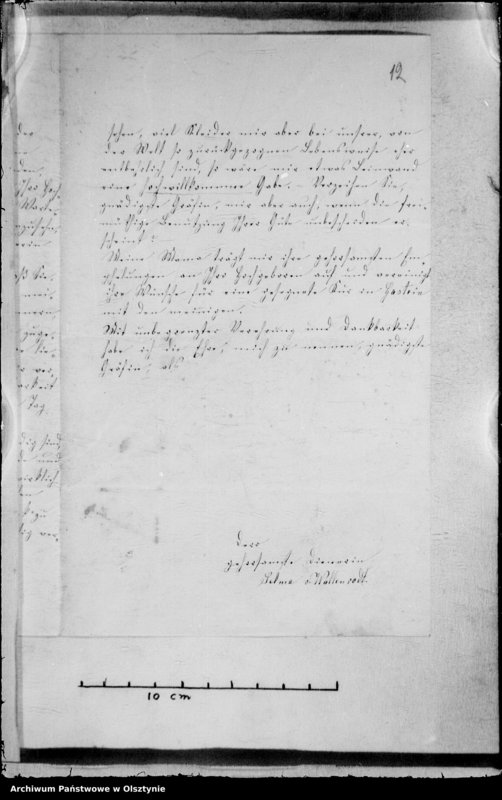 12
sehen, viel Kleider mir aber bei unsrer, von
der Welt so zurückgezognen Lebensweise eher
entbehrlich sind, so wäre mir etwas Leinwand
eine hochwillkommne Gabe. – Verzeihen Sie,
gnädigste Gräfin, mir aber auch, wenn die frei-
müthige Benützung Ihrer Güte unbescheiden er-
scheint!
Meine Mama trägt mir ihre gehorsamsten Em-
pfehlungen an Ihro Hochgeboren auf und vereinigt
ihre Wünsche für eine gesegnete Kur in Gastein
mit den meinigen.
Mit unbegrenzter Verehrung und Dankbarkeit
habe ich die Ehre, mich zu nennen, gnädigste
Gräfin, als
Dero
gehorsamste Dienerin
Selma v Wallenrodt.
10 cm
Archiwum Państwowe w Olsztynie